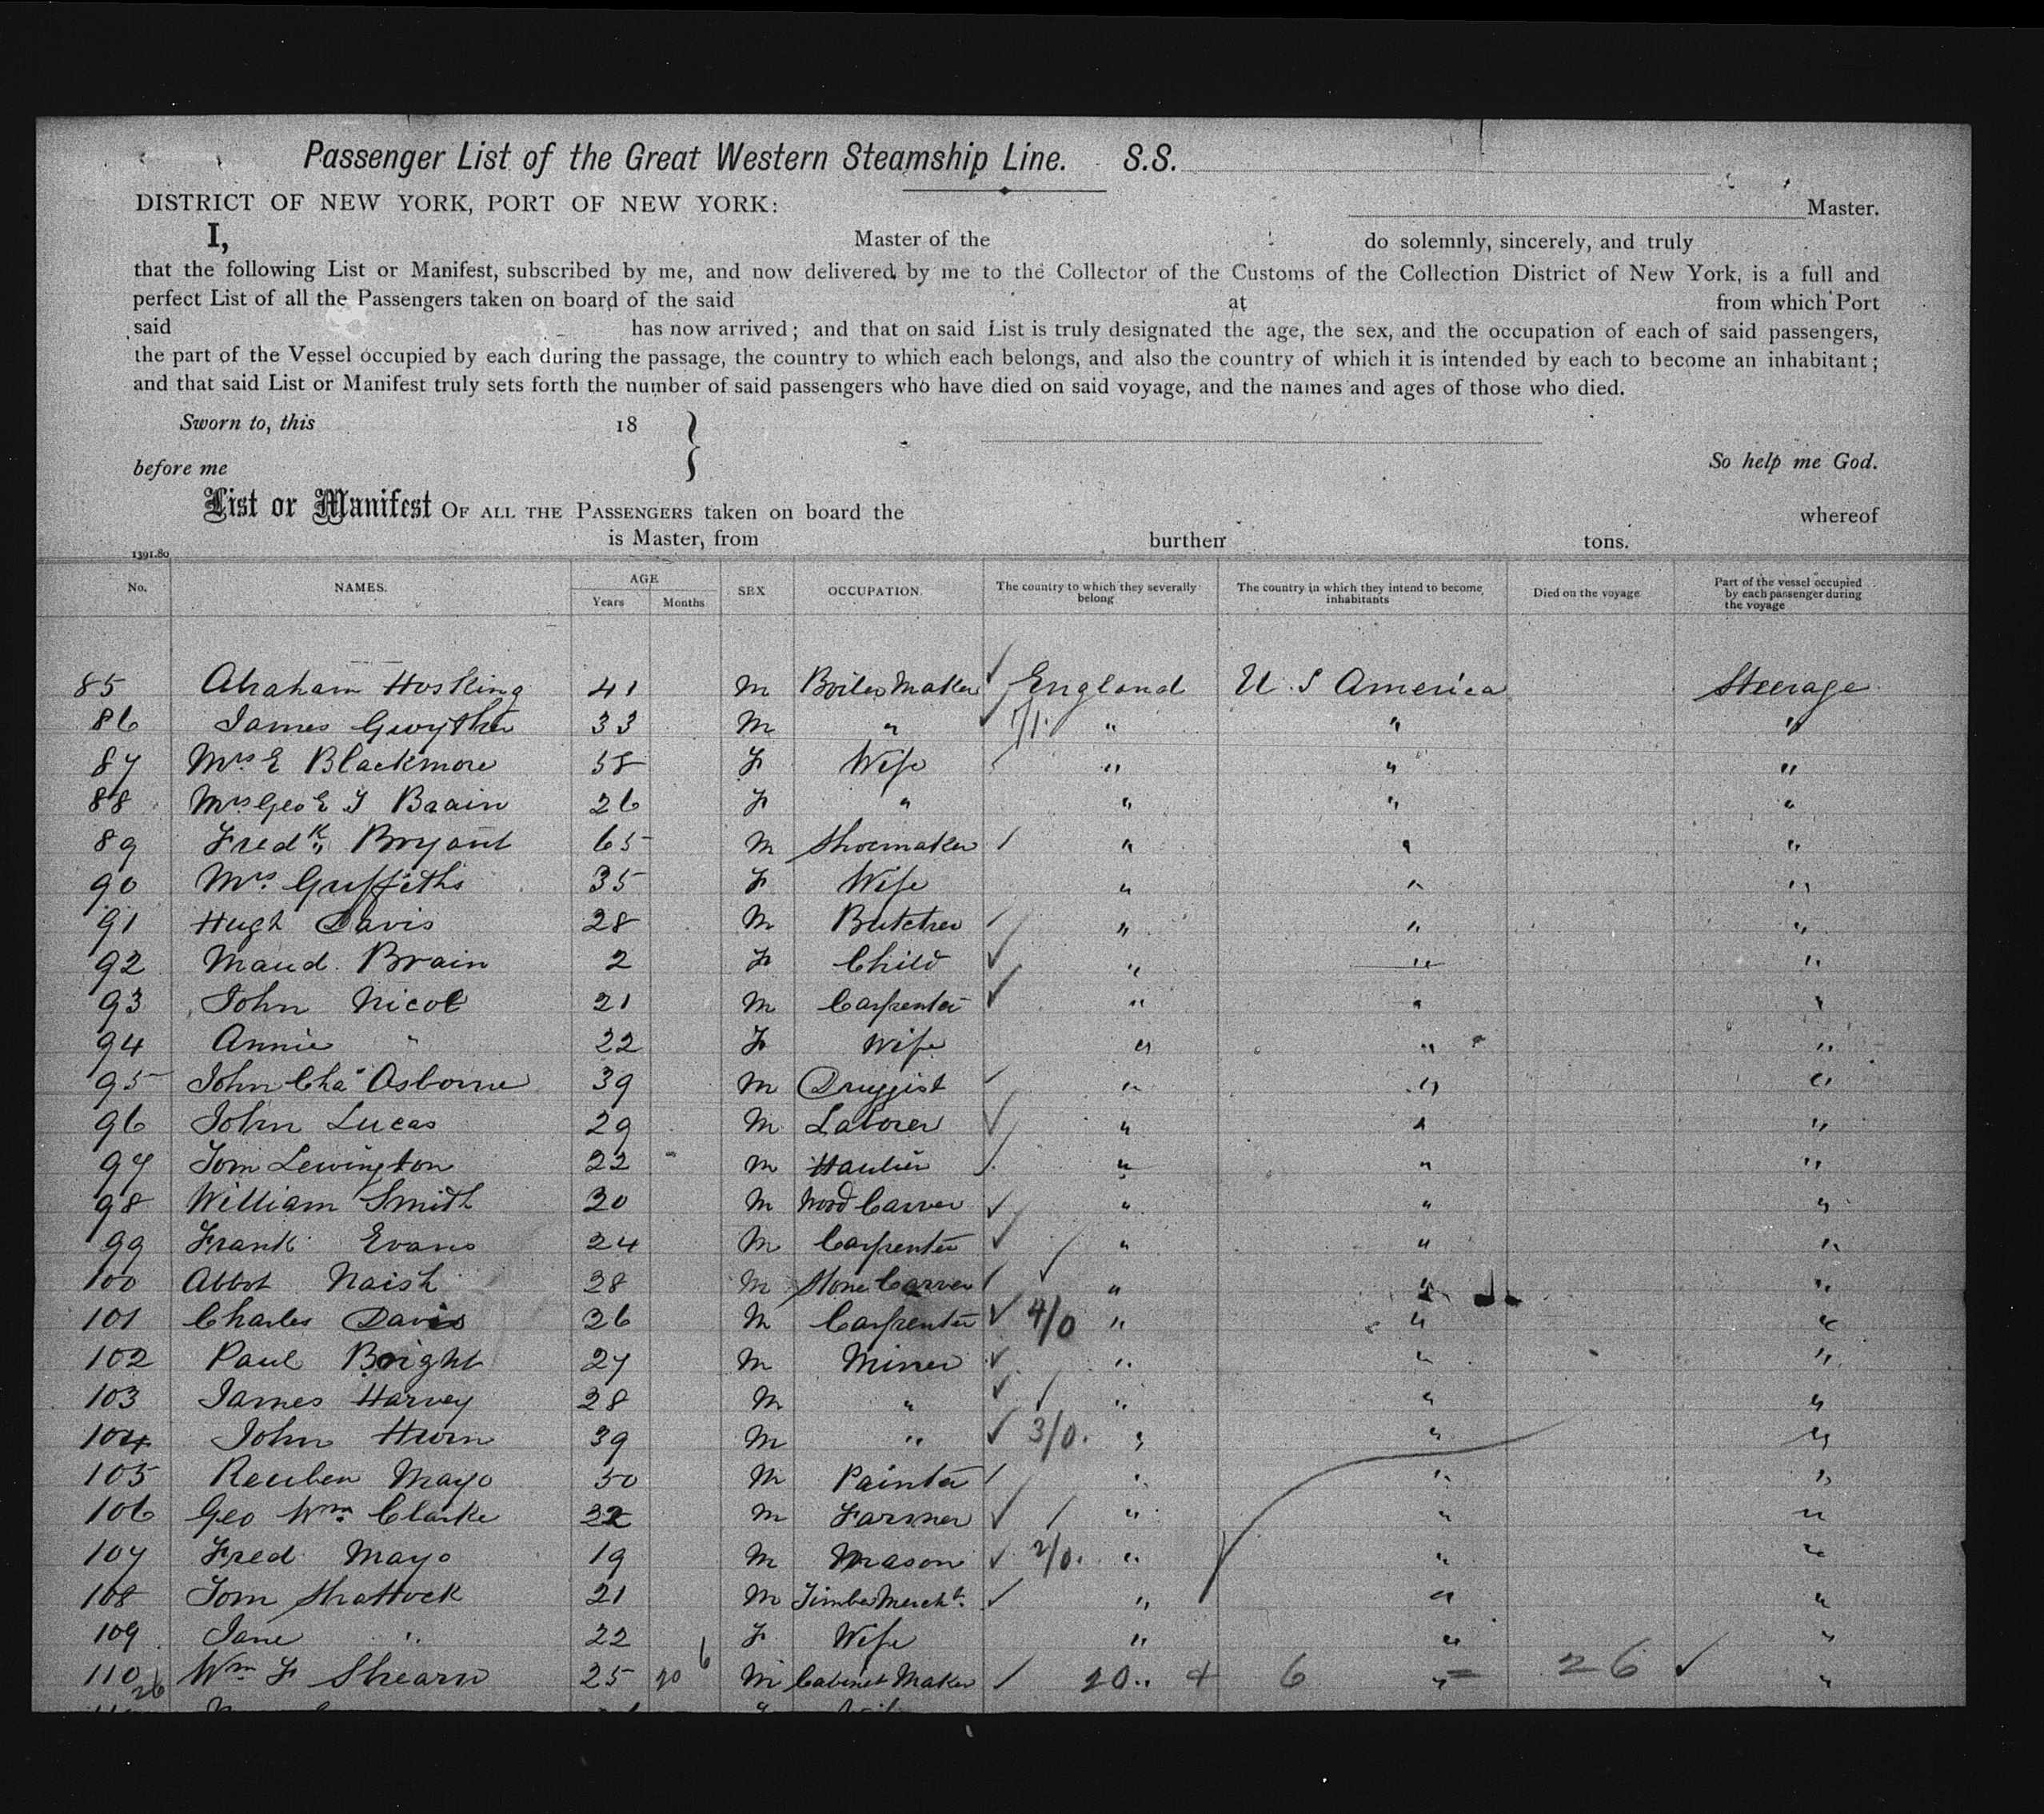 Passenger List of the Great Western Steamship Line. S.S.
DISTRICT OF NEW YORK, PORT OF NEW YORK:
Master.
I, Master of the do solemnly, sincerely, and truly
that the following List or Manifest, subscribed by me, and now delivered by me to the Collector of the Customs of the Collection District of New York, is a full and
perfect List of all the Passengers taken on board of the said at from which Port
said has now arrived; and that on said List is truly designated the age, the sex, and the occupation of each of said passengers,
the part of the Vessel occupied by each during the passage, the country to which each belongs, and also the country of which it is intended by each to become an inhabitant;
and that said List or Manifest truly sets forth the number of said passengers who have died on said voyage, and the names and ages of those who died.
Sworn to, this 18 }
before me So help me God.
List or Manifest OF ALL THE PASSENGERS taken on board the whereof
is Master, from burthen tons.
1391.80
No. NAMES. AGE Years Months SEX OCCUPATION. The country to which they severally belong The country in which they intend to become inhabitants Died on the voyage Part of the vessel occupied by each passenger during the voyage
85 Abraham Hosking 41 M Boiler Maker ✓ England U.S America Steerage
86 James Gwyther 33 M " ✓ 1/1. " " "
87 Mrs E Blackmore 58 F Wife " " "
88 Mrs Geo E J Brain 26 F " " " "
89 Fredk Bryant 65 M Shoemaker ✓ " " "
90 Mrs. Griffiths 35 F Wife " " "
91 Hugh Davis 28 M Butcher ✓ " " "
92 Maud Brain 2 F Child ✓ " " "
93 John Nicol 21 M Carpenter ✓ " " "
94 Annie " 22 F Wife " " "
95 John Chas Osborne 39 M Druggist ✓ " " "
96 John Lucas 29 M Laborer ✓ " " "
97 Tom Lewington 22 " M Haulier ✓ " " "
98 William Smith 30 M Wood Carver ✓ " " "
99 Frank Evans 24 M Carpenter ✓ " " "
100 Abbot Naish 38 M Stone Carver ✓ " " "
101 Charles Davis 36 M Carpenter ✓ 4/0 " " "
102 Paul Bright 27 M Miner ✓ " " "
103 James Harvey 28 M " ✓ " " "
104 John Hurn 39 M " ✓ 3/0. " " "
105 Reuben Mayo 50 M Painter ✓ " " "
106 Geo Wm. Clarke 32 M Farmer ✓ " " "
107 Fred Mayo 19 M Mason ✓ 2/0. " " "
108 Tom Shattock 21 M Timber Mercht. ✓ " " "
109 Jane " 22 F Wife " " "
110 Wm F Shearn 25 20 6 M Cabinet Maker ✓ 20 " + 6 " = 26 ✓ "
26